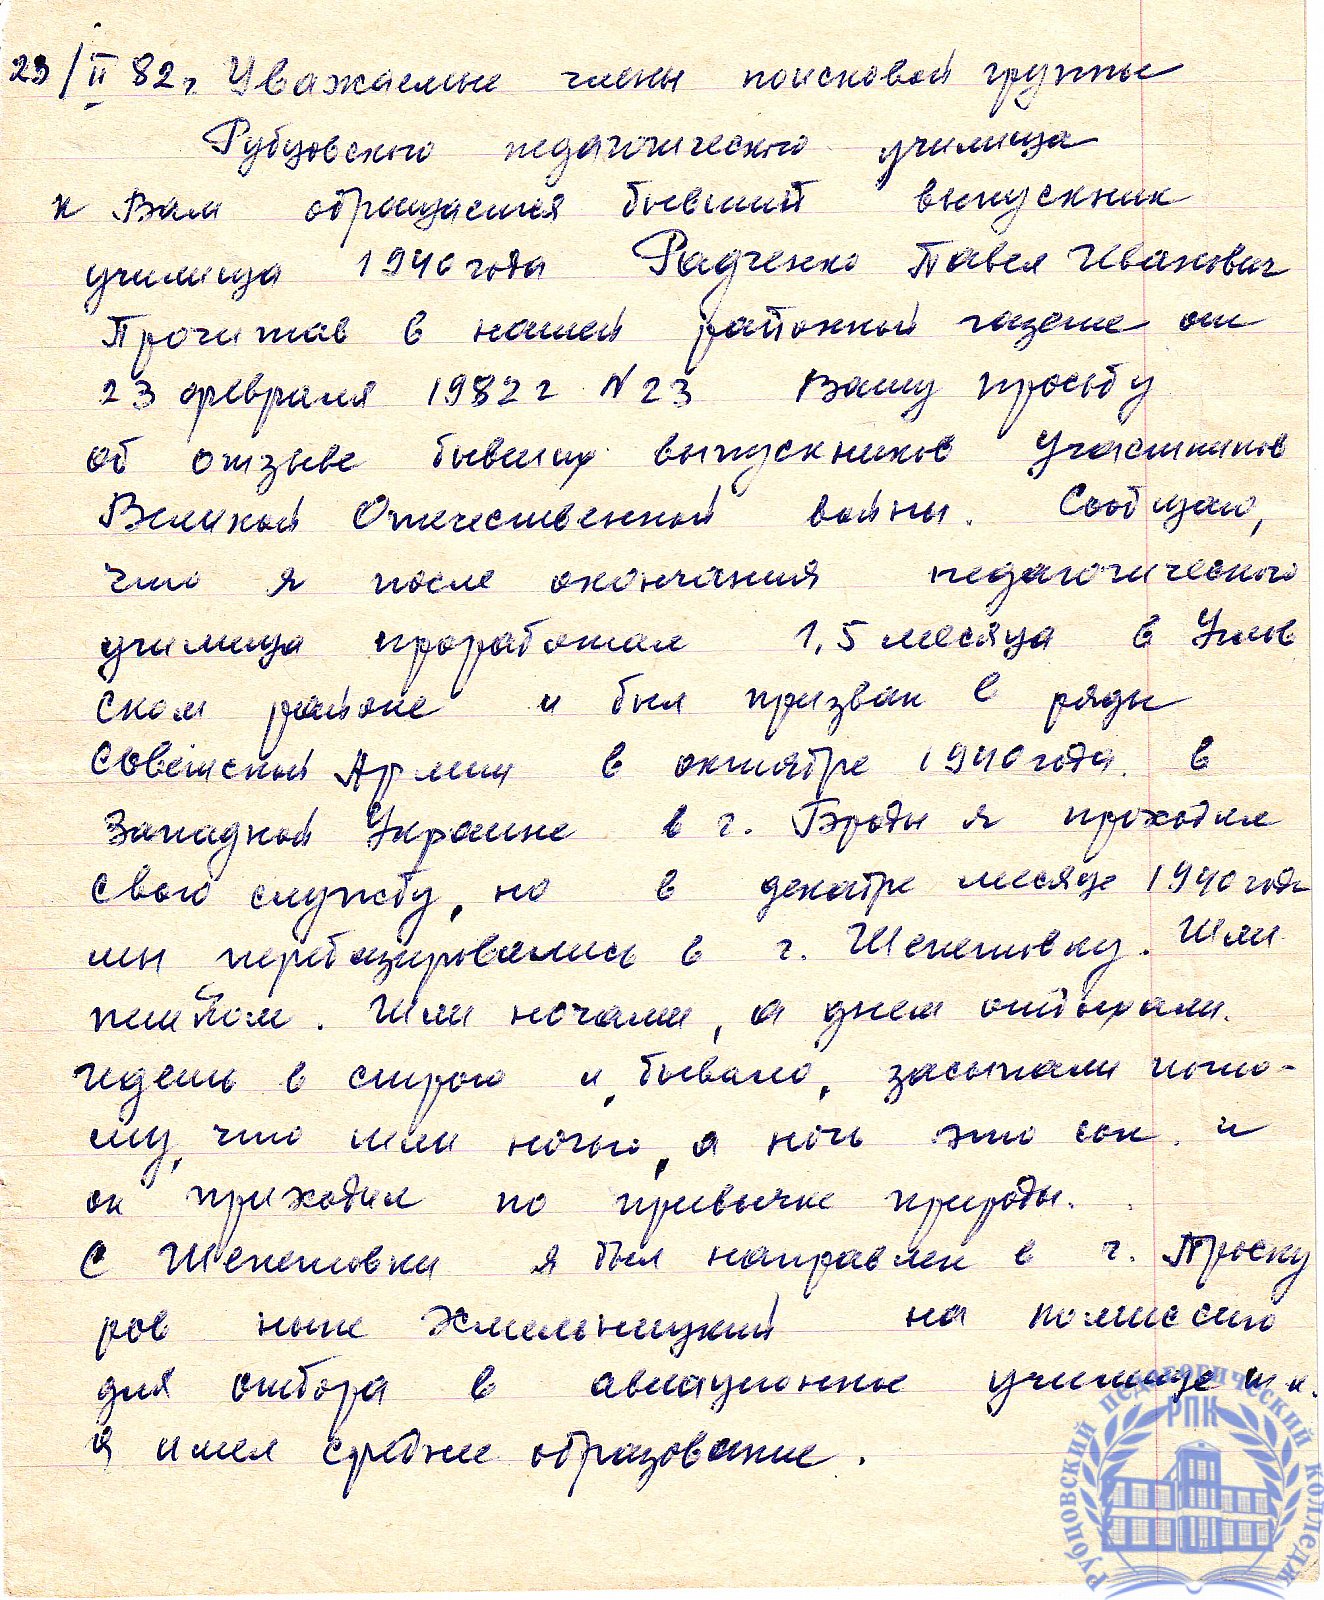 23/II 82г. Уважаемые члены поисковой группы
Рубцовского педагогического училища
к Вам обращается бывший выпускник
училища 1940 года Радченко Павел Иванович
Прочитав в нашей районной газете от
23 февраля 1982 г N 23 Вашу просьбу
об отзыве бывших выпускников участников
Великой Отечественной войны. Сообщаю,
что я после окончания педагогического
училища проработал 1,5 месяца в Углов
ском районе и был призван в ряды
Советской Армии в октябре 1940 года. в
Западной Украине в г. Броды я проходил
свою службу, но в декабре месяце 1940 года
мы перебазировались в г. Шепетовку. Шли
пешком. Шли ночами, а днем отдыхали.
Идешь в строю и, бывало, засыпали пото-
му, что шли ночью, а ночь это сон и
он приходил по привычке природы.
С Шепетовки я был направлен в г. Проску
ров ныне Хмельницкий на комиссию
для отбора в авиационные училище т.к.
я имел среднее образование.
РУБЦОВСКИЙ ПЕДАГОГИЧЕСКИЙ КОЛЛЕДЖ
РПК